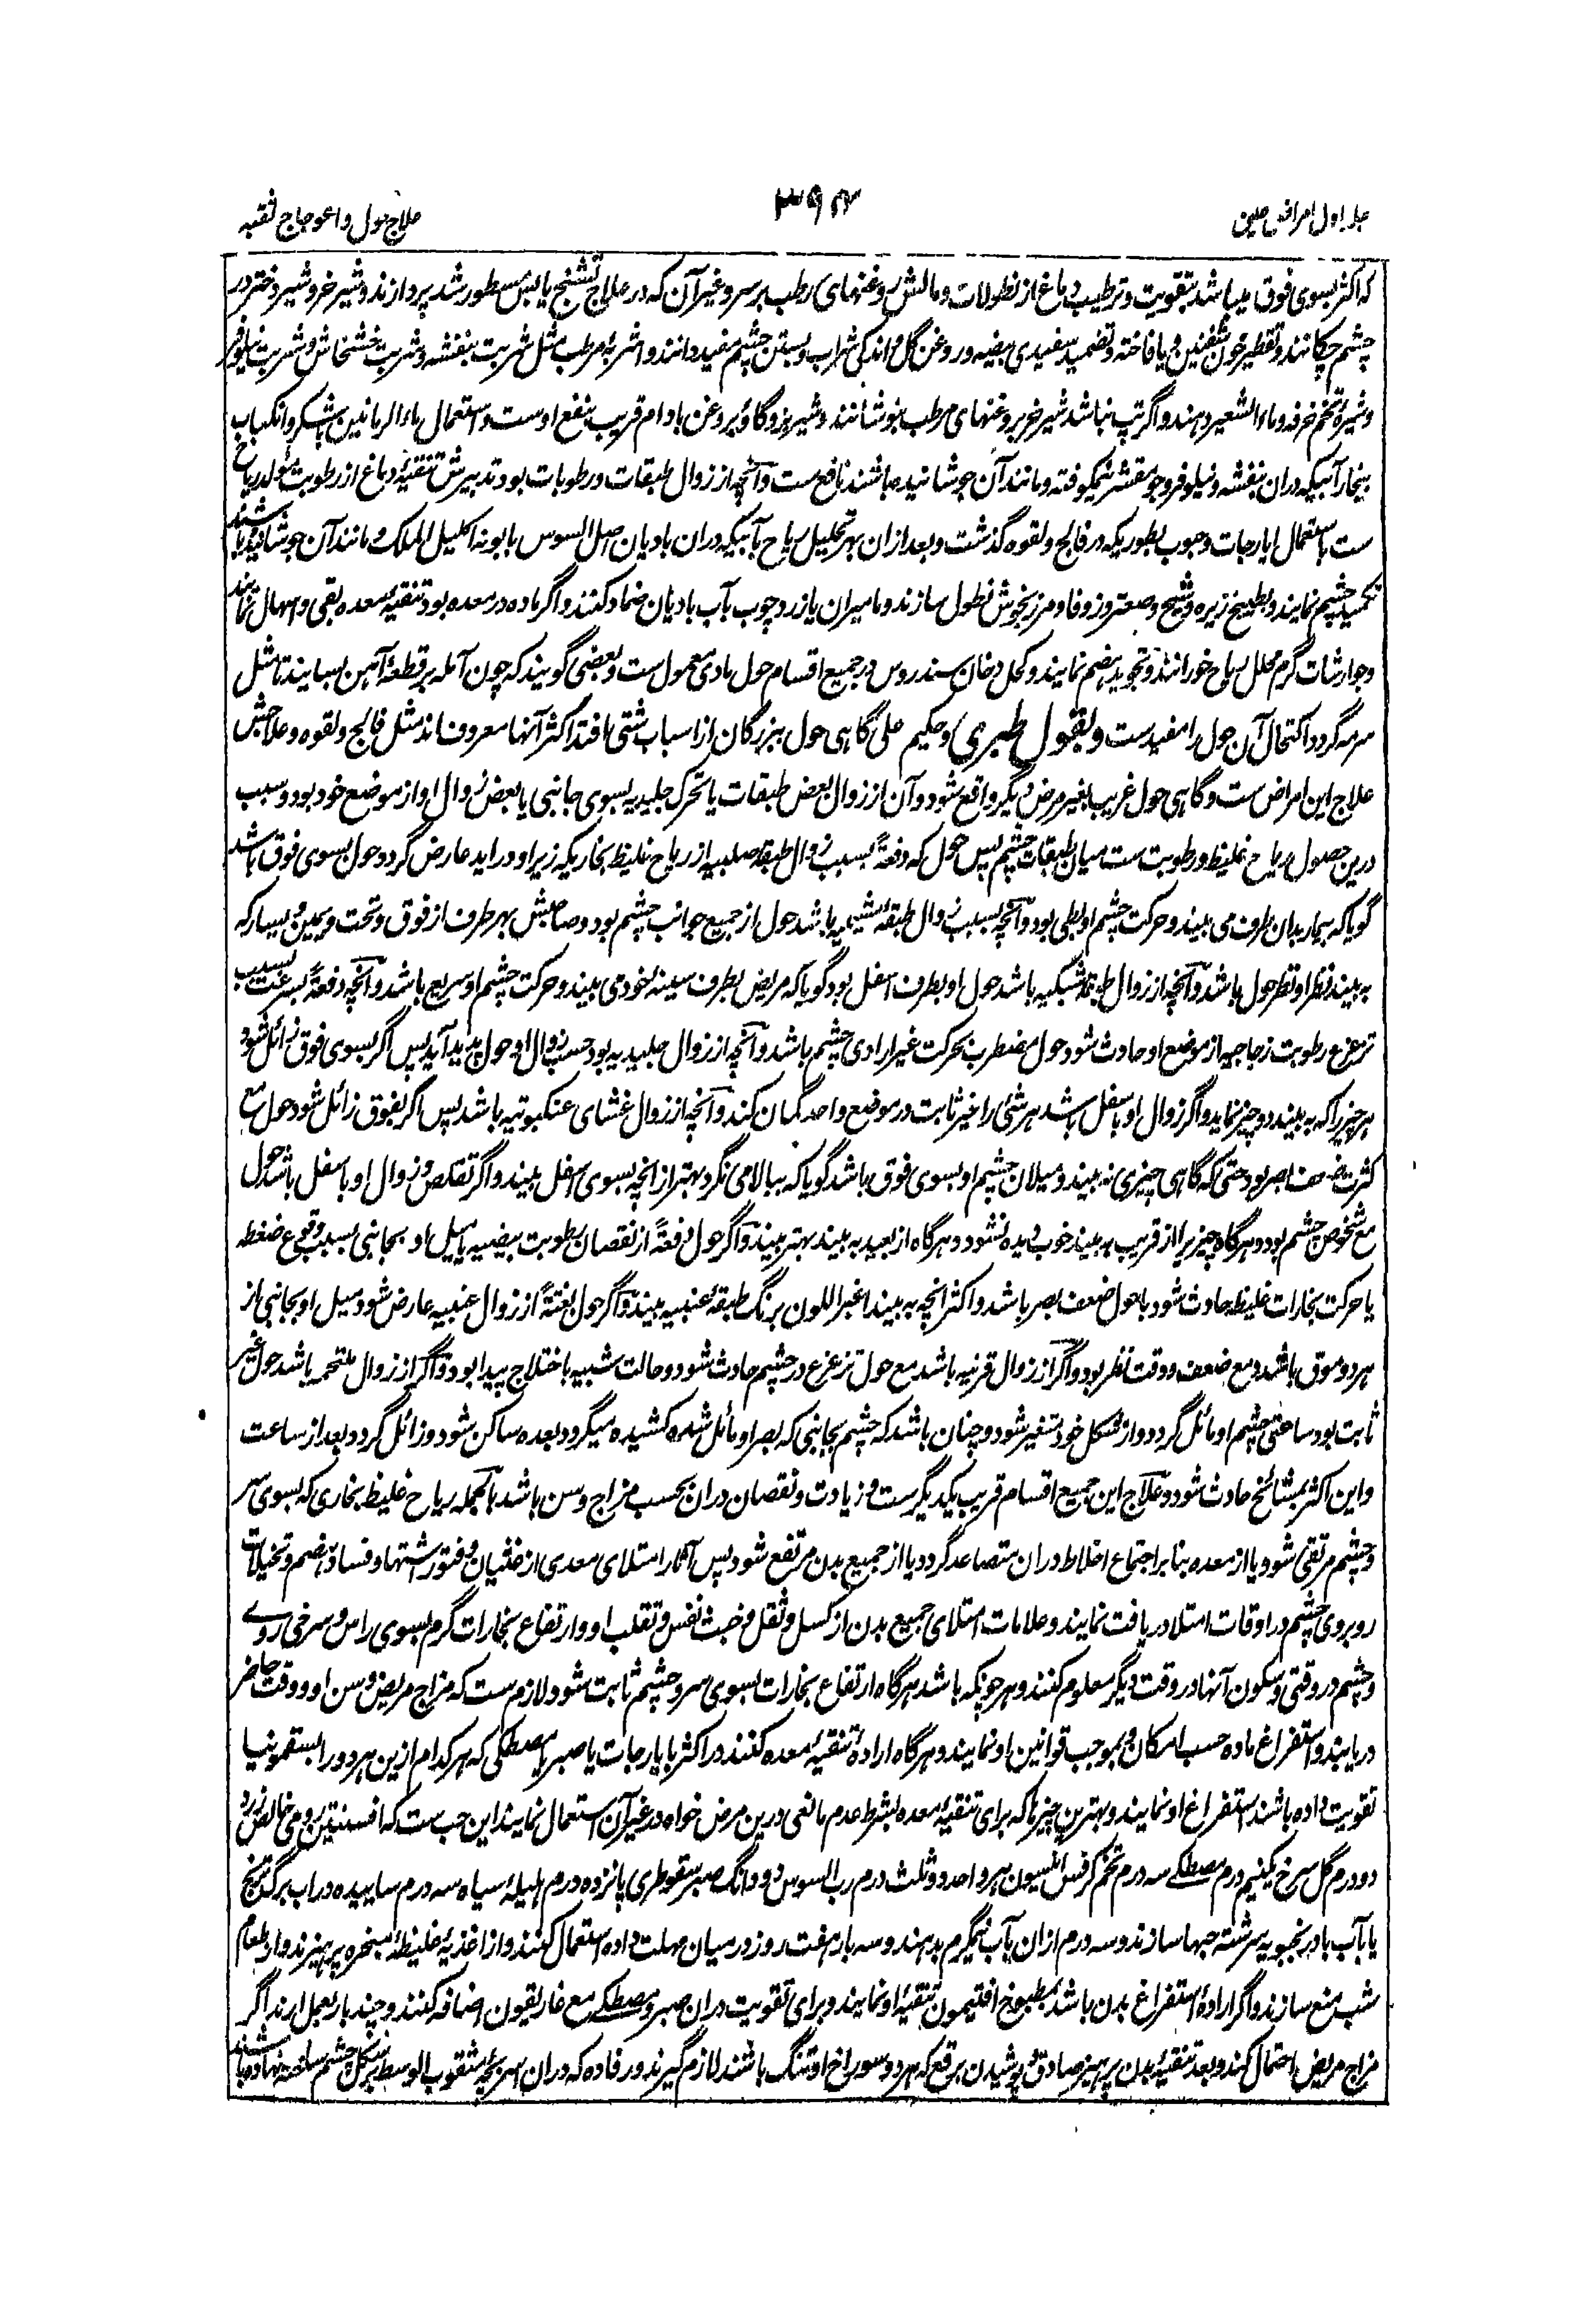 جلد اول امراض عین
۳۹۴
علاج حول و اعوجاج ثقبه
که اکثر بسوی فوق میباشد بتقویت و ترطیب دماغ از نطولات و مالش روغنهای رطب بر سر و غیر آن که در علاج تشنج یابس مسطور شد پردازند و شیر خر و شیر دختر در
چشم چکانند و تقطیر خون شفنین و یا فاخته و تضمید سفیدی بیضه و روغن گل و اندکی شراب و بستن چشم مفید دانند و اشربه مرطب مثل شربت بنفشه و شربت خشخاش و شربت نیلوفر
و شیرهٔ تخم خرفه و ماء الشعیر دهند و اگر تپ نباشد شیر خر بروغنهای مرطب بنوشانند و شیر بز و گاو بروغن بادام قریب بنفع اوست و استعمال ماء الرمانین بشکر و انکباب
ببخار آبیکه دران بنفشه و نیلوفر و جو مقشر نیمکوفته و مانند آن جوشانیده باشند نافع ست و آنچه از زوال طبقات و رطوبات بود تدبیرش تنقیهٔ دماغ از رطوبت مولد ریاح
ست باستعمال ایارجات و حبوب بطوریکه در فالج و لقوه گذشت و بعد ازان بهر تحلیل ریاح بآبیکه دران بادیان اصل السوس بابونه اکلیل الملک و مانند آن جوشانیده باشند
تکمید چشم نمایند و بطبیخ زیره و شیح و صعتر و زوفا و مرزنجوش نطول سازند و مامیران یا زردچوب بآب بادیان ضماد کنند و اگر ماده در معده بود تنقیهٔ معده بقی و اسهال نمایند
و جوارشات گرم محلل ریاح خورانند و تجوید هضم نمایند و کحل دخان سندروس در جمیع اقسام حول مادی معمول ست و بعضی گویند که چون آمله بر قطعهٔ آهن بسایند تا مثل
سرمه گردد اکتحال آن حول را مفیدست و بقول طبری و حکیم علی گاهی حول ببزرگان از اسباب شتی افتد اکثر آنها معروف اند مثل فالج و لقوه و علاجش
علاج این امراض ست و گاهی حول غریب بغیر مرض دیگر واقع شود و آن از زوال بعض طبقات یا تحرک جلیدیه بسوی جانبی یا بعض زوال او از موضع خود بود و سبب
درین حصول ریاح غلیظ و رطوبت ست میان طبقات چشم پس حول که دفعةً بسبب زوال طبقه صلبیه از ریاح غلیظ بخاریکه زیر او دراید عارض گردد حول بسوی فوق باشد
گویا که بیمار بدان طرف می بیند و حرکت چشم او بطی بود و آنچه بسبب زوال طبقهٔ مشیمیه باشد حول از جمیع جوانب چشم بود و صاحبش بهر طرف از فوق و تحت و یمین و یسار که
به بیند نظر او نظر حول باشد و آنچه از زوال طبقهٔ شبکیه باشد حول او بطرف اسفل بود گویا که مریض بطرف سینه خود می بیند و حرکت چشم او سریع باشد و آنچه دفعةً بسرعت بسبب
تزعزع رطوبت زجاجیه از موضع او حادث شود حول مضطرب بحرکت غیر ارادی چشم باشد و آنچه از زوال جلیدیه بود حسب زوال او حول پدید آید پس اگر بسوی فوق زائل شود
هر چیز را که به بیند دو چیز نماید و اگر زوال او باسفل باشد هر شئی را غیر ثابت در موضع واحد گمان کند و آنچه از زوال غشای عنکبوتیه باشد پس اگر بفوق زائل شود حول مع
کثرت ضعف بصر بود حتی که گاهی چیزی نه بیند و میلان چشم او بسوی فوق باشد گویا که ببالا می نگرد بهتر از انچه بسوی اسفل بیند و اگر تقلص و زوال او باسفل باشد حول
مع شخوص چشم بود و هرگاه چیزیرا از قریب به بیند خوب دیده نشود و هرگاه از بعید به بیند بهتر بیند و اگر حول دفعةً از نقصان رطوبت بیضیه یا میل او بجانبی بسبب وقوع ضغطه
یا حرکت بخارات غلیظ حادث شود با حول ضعف بصر باشد و اکثر انچه به بیند اغبر اللون برنگ طبقهٔ عنبیه بیند و اگر حول بغتةً از زوال عنبیه عارض شود میل او بجانبی از
هر دو موق باشد و مع ضعف و وقت نظر بود و اگر از زوال قرنیه باشد مع حول تزعزع در چشم حادث شود و حالت شبیه باختلاج پیدا بود و اگر از زوال ملتحمه باشد حول غیر
ثابت بود ساعتی چشم او مائل گردد و از شکل خود متغیر شود و چنان باشد که چشم بجانبی که بصر او مائل شده کشیده میگردد بعده ساکن شود و زائل گردد بعد از ساعت
و این اکثر بمشائخ حادث شود و علاج این جمیع اقسام قریب یکدیگرست و زیادت و نقصان دران بحسب مزاج و سن باشد بالجمله ریاح غلیظ بخاری که بسوی سر
و چشم مرتقی شود یا از معده بنا بر اجتماع اخلاط دران متصاعد گردد یا از جمیع بدن مرتفع شود پس آثار امتلای معدی از غثیان و فتور اشتها و فساد هضم و تخیلات
روبروی چشم در اوقات امتلا دریافت نمایند و علامات امتلای جمیع بدن از کسل و ثقل و خبث نفس و تقلب او و ارتفاع بخارات گرم بسوی راس و سرخی روے
و چشم در وقتی و سکون آنها در وقت دیگر معلوم کنند و هر چونکه باشد هرگاه ارتفاع بخارات بسوی سر و چشم ثابت شود لازم ست که مزاج مریض و سن او و وقت حاضر
دریابند و استفراغ ماده حسب امکان و بموجب قوانین او نمایند و هرگاه ارادهٔ تنقیهٔ معده کنند در اکثر بایارجات یا صبر یا مصطکی که هر کدام ازین هر دو را بسقمونیا
تقویت داده باشند استفراغ او نمایند و بهترین چیزها که برای تنقیهٔ معده بشرط عدم مانعی درین مرض خواه در غیر آن استعمال نمایند این حب ست که افسنتین رومی خالص زرد
دو درم گل سرخ یکنیم درم مصطکے سه درم تخم کرفس انیسون هر واحد دو ثلث درم رب السوس دو دانگ صبر سقوطری پانزده درم هلیلهٔ سیاه سه درم ساییده در اب برگ ترنج
یا بآب بادرنجبویه سرشته حبها سازند و سه درم ازان بآب نیمگرم بدهند و سه بار هفت روز در میان مهلت داده استعمال کنند و از اغذیهٔ غلیظهٔ مبخره پرهیزند و از طعام
شب منع سازند و اگر ارادهٔ استفراغ بدن باشد بمطبوخ افتیمون تنقیهٔ او نمایند و برای تقویت دران صبر و مصطکے مع غاریقون اضافه کنند و چند بار بعمل ارند اگر
مزاج مریض احتمال کند و بعد تنقیهٔ بدن پرهیز صادق و پوشیدن برقع که هر دو سوراخ او تنگ باشند لازم گیرند و رفاده که دران مثقوب الوسط بر شکل چشم ساخته نهاده باشند